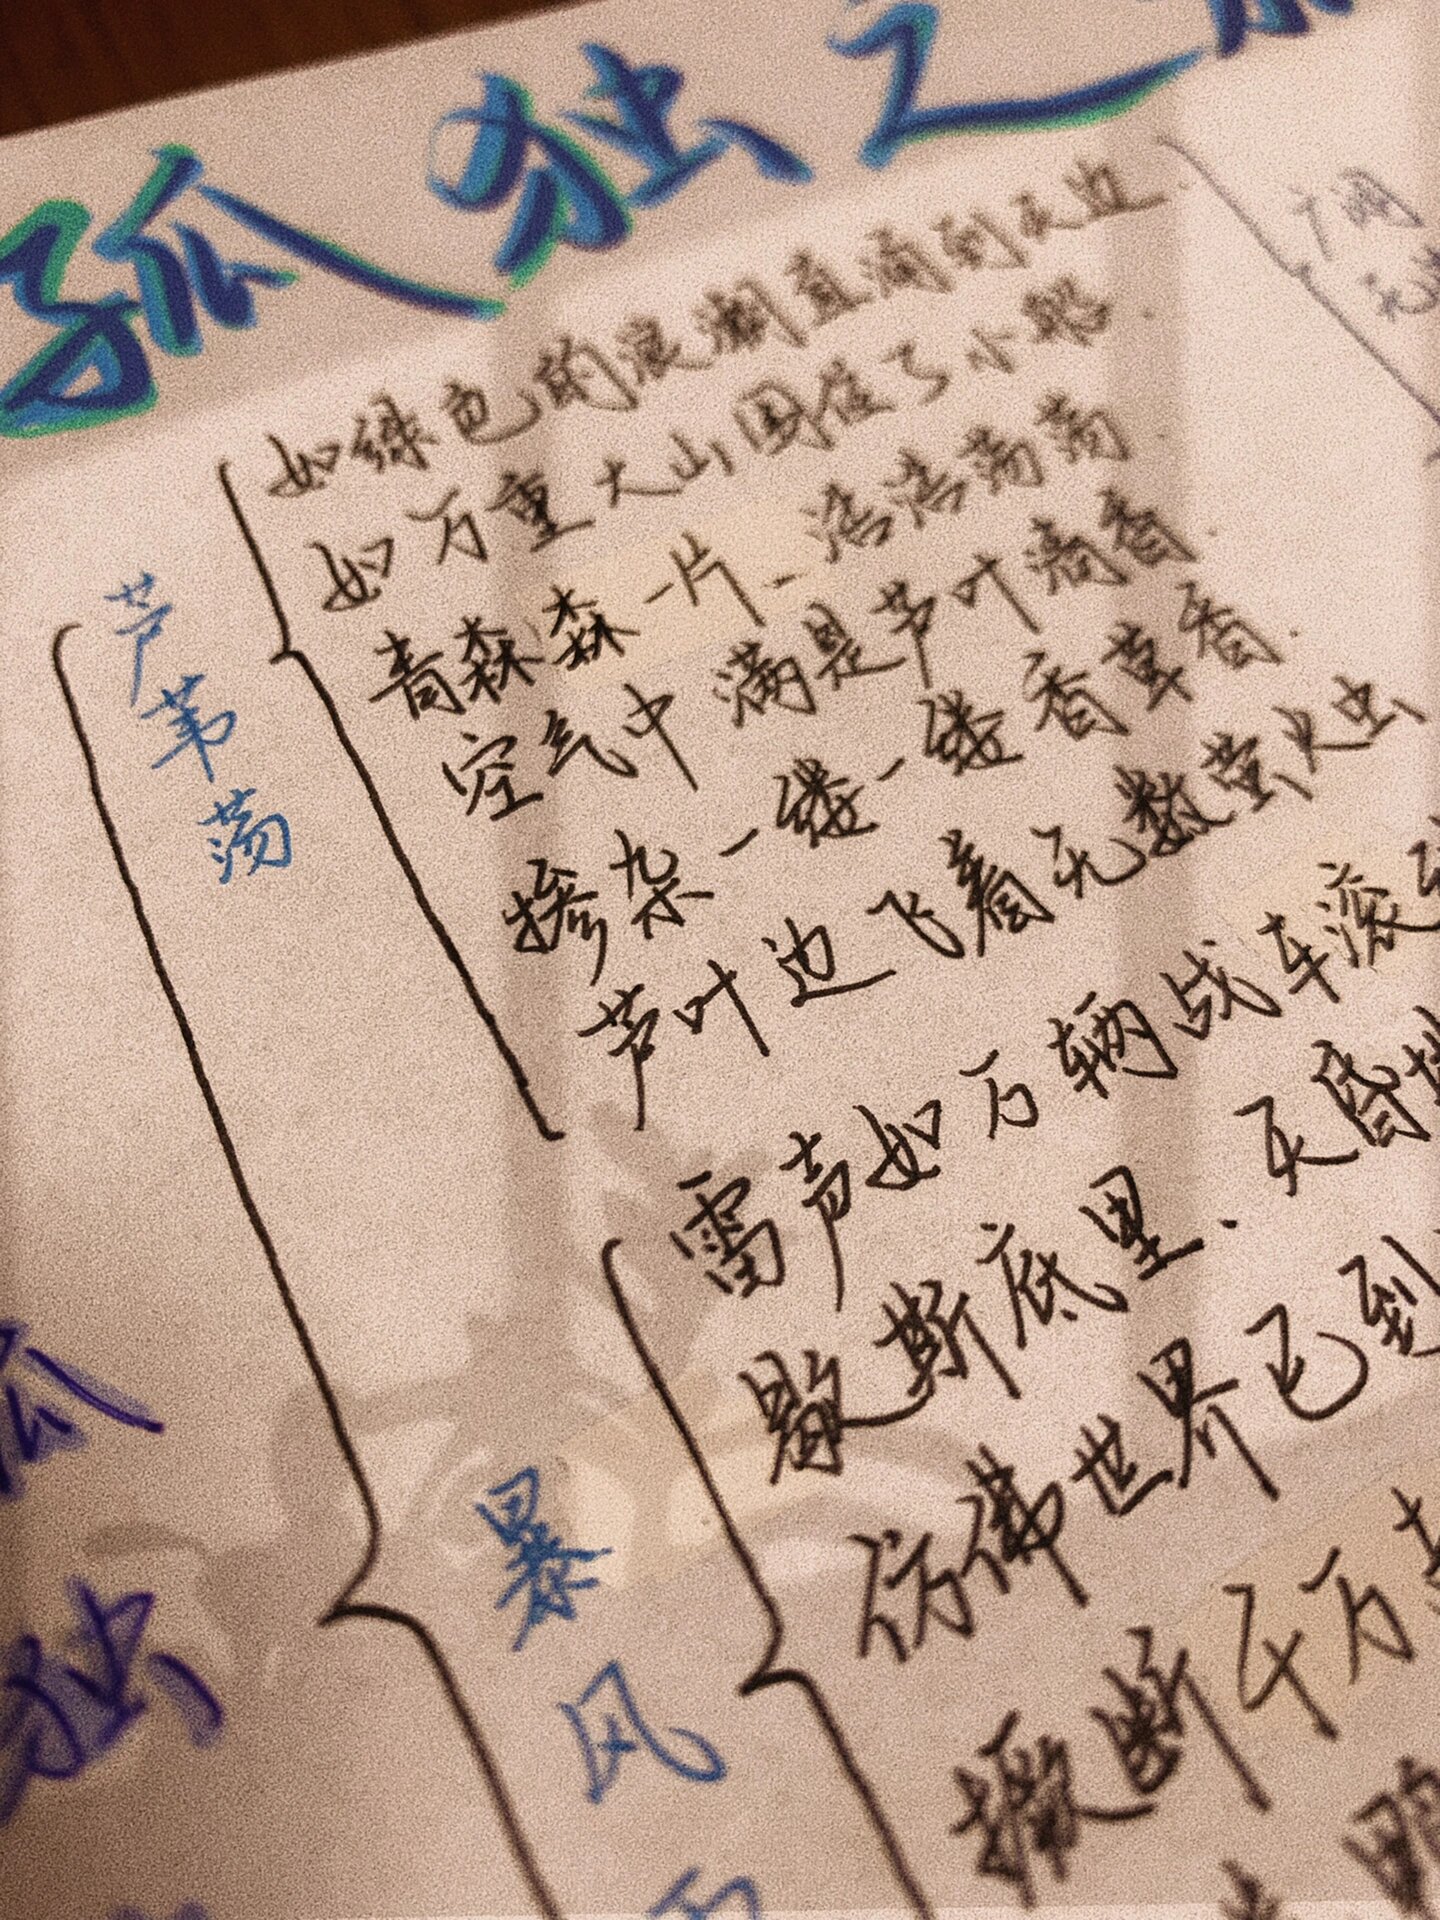 孤独之
如绿色的浪潮直涌到天边.
如万重大山围住了小鸭.
青森森一片、浩浩荡荡.
空气中满是芦叶清香.
掺杂一缕一缕香草香.
芦叶边飞着无数萤火虫
芦苇荡
雷声如万辆战车滚
歇斯底里. 天昏
仿佛世界已到
撅断千万
暴风
孤独